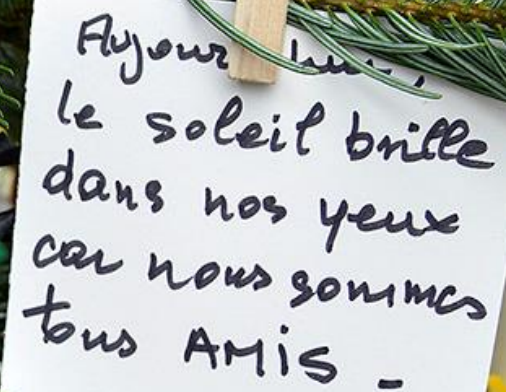 Aujourd'hui,
le soleil brille
dans nos yeux
car nous sommes
tous AMIS -